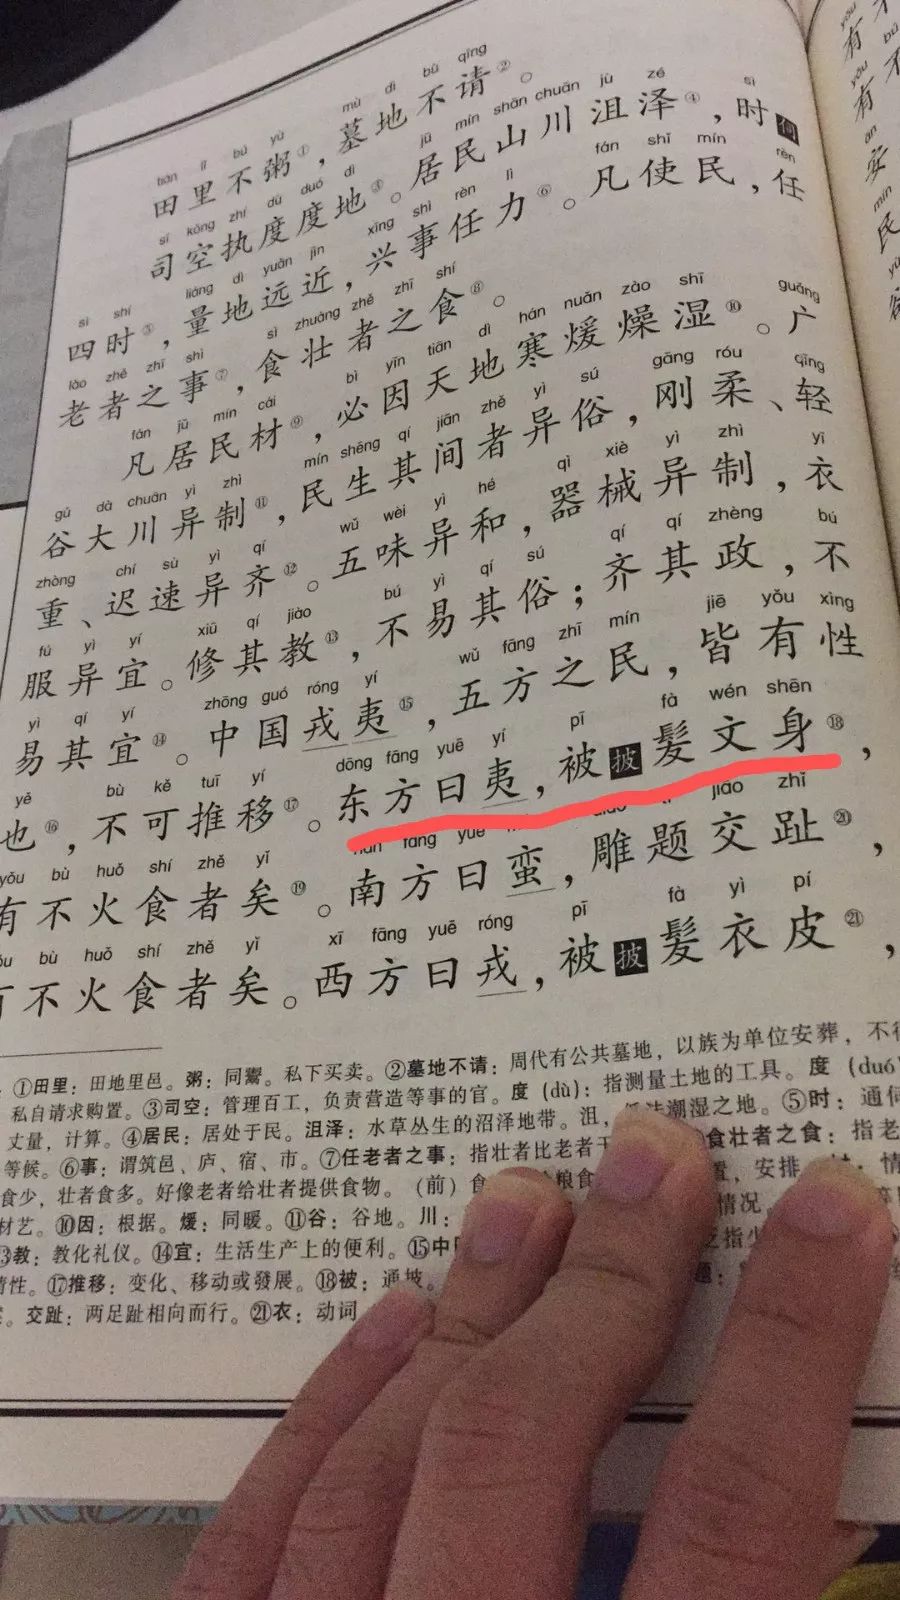 tián lǐ bú yù mù dì bù qǐng
田里不粥①，墓地不请②。
sī kōng zhí dù duó dì jū mín shān chuān jù zé sì
司空执度度地③。居民山川沮泽④，时伺
sì shí liáng dì yuǎn jìn xīng shì rèn lì fán shǐ mín rèn
四时⑤，量地远近，兴事任力⑥。凡使民，任
lǎo zhě zhī shì sì zhuàng zhě zhī shí
老者之事⑦，食壮者之食⑧。
fán jū mín cái bì yīn tiān dì hán nuǎn zào shī guǎng
凡居民材⑨，必因天地寒煖燥湿⑩。广
gǔ dà chuān yì zhì mín shēng qí jiān zhě yì sú gāng róu qīng
谷大川异制⑪，民生其间者异俗，刚柔、轻
zhòng chí sù yì qí wǔ wèi yì hé qì xiè yì zhì yī
重、迟速异齐⑫。五味异和，器械异制，衣
fú yì yí xiū qí jiào bú yì qí sú qí qí zhèng bú
服异宜。修其教⑬，不易其俗；齐其政，不
yì qí yí zhōng guó róng yí wǔ fāng zhī mín jiē yǒu xìng
易其宜⑭。中国戎夷⑮，五方之民，皆有性
yě bù kě tuī yí dōng fāng yuē yí pī fà wén shēn
也⑯，不可推移⑰。东方曰夷，被披髪文身⑱，
yǒu bù huǒ shí zhě yǐ nán fāng yuē jiāo zhǐ
有不火食者矣⑲。南方曰蛮，雕题交趾⑳，
bù huǒ shí zhě yǐ xī fāng yuē róng pī fà yì pí
不火食者矣。西方曰戎，被披髪衣皮㉑，
①田里：田地里邑。粥：同鬻。私下买卖。②墓地不请：周代有公共墓地，以族为单位安葬，不得
私自请求购置。③司空：管理百工，负责营造等事的官。度（dù）：指测量土地的工具。度（duó）
丈量，计算。④居民：居处于民。沮泽：水草丛生的沼泽地带。沮，潮湿之地。⑤时：通伺
等候。⑥事：谓筑邑、庐、宿、市。⑦任老者之事：指壮者比老者干食壮者之食：指老
食少，壮者食多。好像老者给壮者提供食物。（前）食粮食置，安排情
材艺。⑩因：根据。煖：同暖。⑪谷：谷地。川：情况。
⑬教：教化礼仪。⑭宜：生活生产上的便利。⑮中之指少
情性。⑰推移：变化、移动或發展。⑱被：通坡。题：
交趾：两足趾相向而行。㉑衣：动词
yǒu 有
yǒu bù 有不
ān 安
mín 民